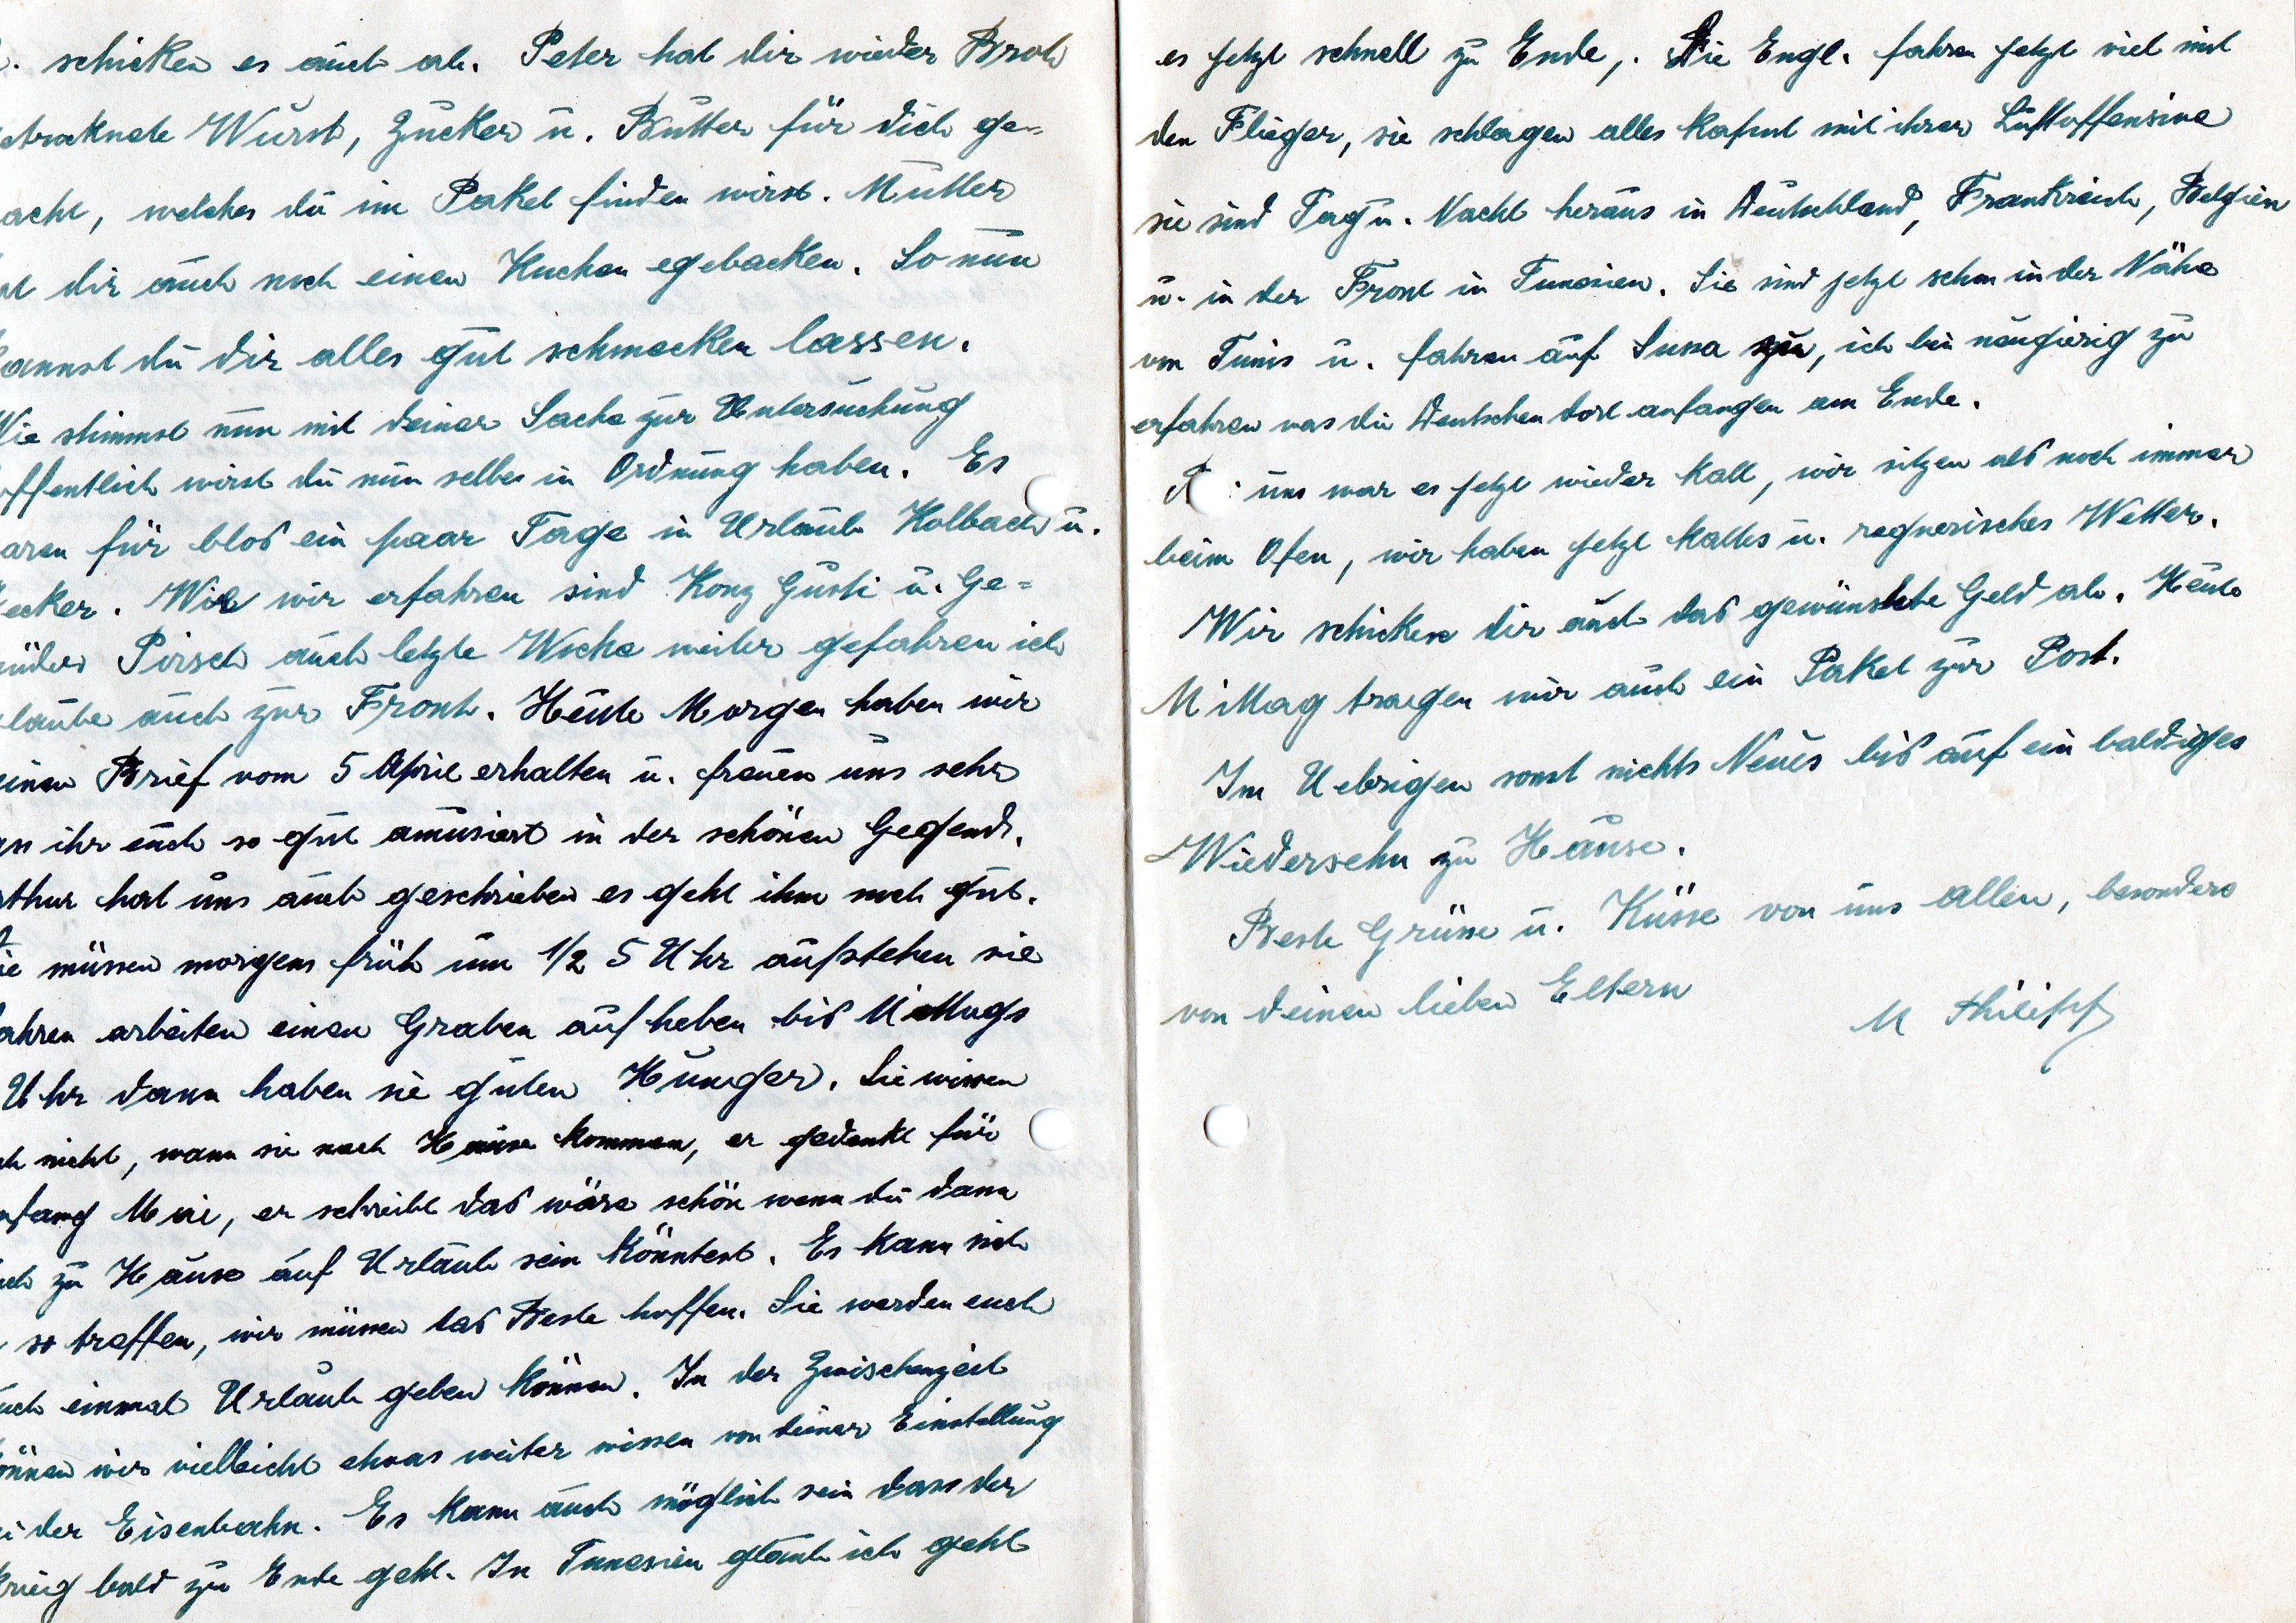 . schicken es auch ab. Peter hat dir wieder Brot
getroknete Wurst, Zucker u. Butter für dich ge-
acht, welches du im Paket finden wirst. Mutter
at dir auch noch einen Kuchen egebacken. So nun
kannst du dir alles gut schmecken lassen.
Wie stimmt nun mit deiner Sache zur Untersuchung
offentlich wirst du nun selbes in Ordnung haben. Es
aren für blos ein paar Tage in Urlaub Kolbach u.
ecker. Wie wir erfahren sind Konz Gusti u. Ge=
rüder Pirsch auch letzte Woche weiter gefahren ich
laube auch zur Front. Heute Morgen haben wir
einen Brief vom 5 April erhalten u. freuen uns sehr
ass ihr euch so gut amüsiert in der schönen Gegend.
rthur hat uns auch geschrieben es geht ihm noch gut.
Sie müssen morgens früh um 1/2 5 Uhr aufstehen sie
fahren arbeiten einen Graben aufheben bis Mittags
Uhr dann haben sie guten Hunger. Sie wissen
ch nicht, wann sie nach Hause kommen, er gedenkt für
nfang Mai, er schreibt das wäre schön wenn du dann
uch zu Hause auf Urlaub sein könntest. Es kann sich
so treffen, wir müssen das Beste hoffen. Sie werden euch
uch einmal Urlaub geben können. In der Zwischenzeit
können wir vielleicht etwas weiter wissen von deiner Einstellung
i der Eisenbahn. Es kann auch möglich sein dass der
Krieg bald zu Ende geht. In Tunesien glaub ich geht
es jetzt schnell zu Ende,. Die Engl. fahren jetzt viel mit
den Flieger, sie schlagen alles kaput mit ihrer Luftoffensive
sie sind Tag u. Nacht heraus in Deutschland, Frankreich, Belgien
u. in der Front in Tunesien. Sie sind jetzt schon in der Nähe
von Tunis u. fahren auf Susa zu, ich bin neugierig zu
erfahren was die Deutschen dort anfangen am Ende.
uns war es jetzt wieder kalt, wir sitzen als noch immer
beim Ofen, wir haben jetzt kaltes u. regnerisches Wetter.
Wir schicken dir auch das gewünschte Geld ab. Heute
Mittag tragen wir auch ein Paket zur Post.
Im Uebrigen sonst nichts Neues bis auf ein baldiges
Wiedersehn zu Hause.
Beste Grüsse u. Küsse von uns allen, besonders
von deinen lieben Eltern
M Philipp